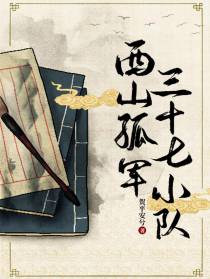 西山孤军
三十七小队
贺平安兮 著